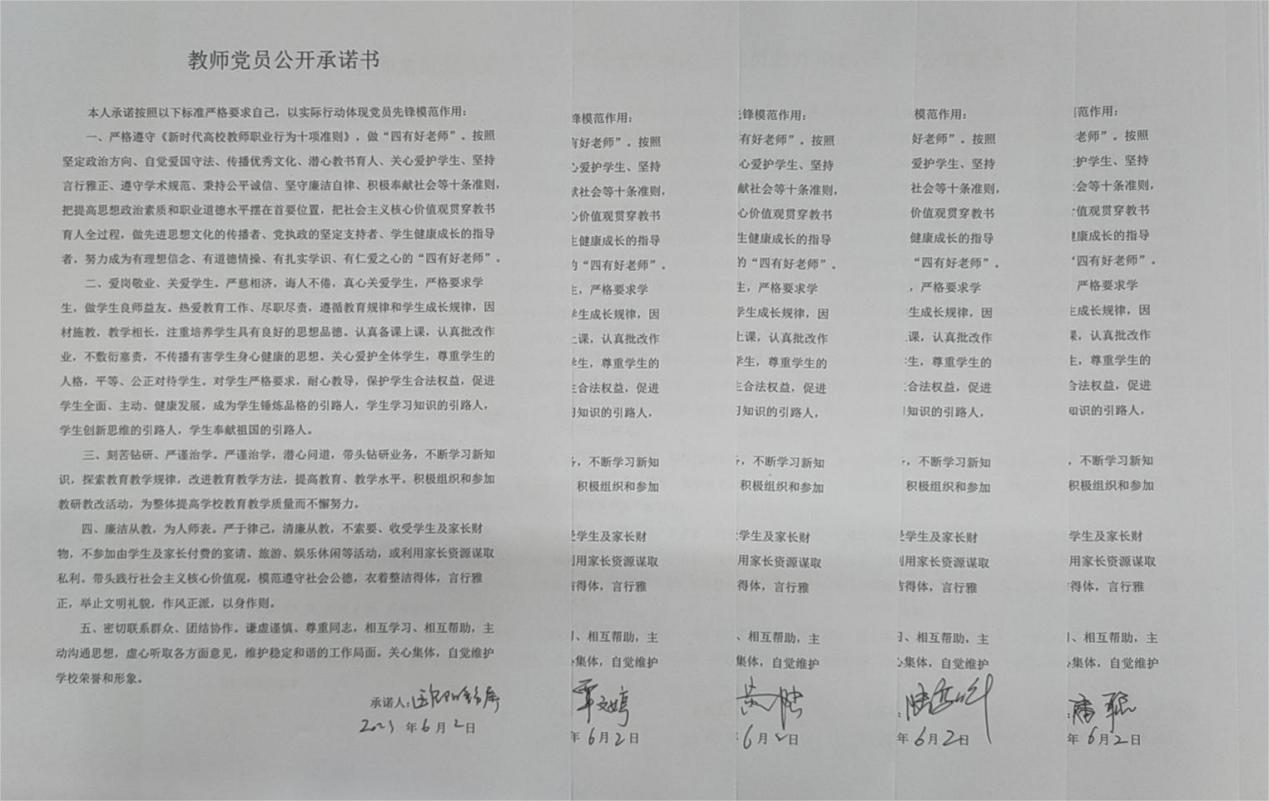 教师党员公开承诺书
本人承诺按照以下标准严格要求自己，以实际行动体现党员先锋模范作用：
一、严格遵守《新时代高校教师职业行为十项准则》，做“四有好老师”。按照
坚定政治方向、自觉爱国守法、传播优秀文化、潜心教书育人、关心爱护学生、坚持
言行雅正、遵守学术规范、秉持公平诚信、坚守廉洁自律、积极奉献社会等十条准则，
把提高思想政治素质和职业道德水平摆在首要位置，把社会主义核心价值观贯穿教书
育人全过程，做先进思想文化的传播者、党执政的坚定支持者、学生健康成长的指导
者，努力成为有理想信念、有道德情操、有扎实学识、有仁爱之心的“四有好老师”。
二、爱岗敬业、关爱学生。严慈相济，诲人不倦，真心关爱学生，严格要求学
生，做学生良师益友。热爱教育工作、尽职尽责，遵循教育规律和学生成长规律，因
材施教，教学相长，注重培养学生具有良好的思想品德。认真备课上课，认真批改作
业，不敷衍塞责，不传播有害学生身心健康的思想。关心爱护全体学生，尊重学生的
人格，平等、公正对待学生。对学生严格要求，耐心教导，保护学生合法权益，促进
学生全面、主动、健康发展，成为学生锤炼品格的引路人，学生学习知识的引路人，
学生创新思维的引路人，学生奉献祖国的引路人。
三、刻苦钻研、严谨治学。严谨治学，潜心问道，带头钻研业务，不断学习新知
识，探索教育教学规律，改进教育教学方法，提高教育、教学水平。积极组织和参加
教研教改活动，为整体提高学校教育教学质量而不懈努力。
四、廉洁从教，为人师表。严于律己，清廉从教，不索要、收受学生及家长财
物，不参加由学生及家长付费的宴请、旅游、娱乐休闲等活动，或利用家长资源谋取
私利。带头践行社会主义核心价值观，模范遵守社会公德，衣着整洁得体，言行雅
正，举止文明礼貌，作风正派，以身作则。
五、密切联系群众、团结协作。谦虚谨慎、尊重同志，相互学习、相互帮助，主
动沟通思想，虚心听取各方面意见，维护稳定和谐的工作局面。关心集体，自觉维护
学校荣誉和形象。
承诺人：
2023 年 6 月 2 日
锋模范作用：
有好老师”。按照
心爱护学生、坚持
献社会等十条准则，
心价值观贯穿教书
生健康成长的指导
的“四有好老师”。
生，严格要求学
学生成长规律，因
上课，认真批改作
学生，尊重学生的
生合法权益，促进
习知识的引路人，
务，不断学习新知
积极组织和参加
受学生及家长财
利用家长资源谋取
洁得体，言行雅
习、相互帮助，主
心集体，自觉维护
覃文婷
年 6 月 2 日
先锋模范作用：
有好老师”。按照
心爱护学生、坚持
献社会等十条准则，
心价值观贯穿教书
生健康成长的指导
的“四有好老师”。
生，严格要求学
学生成长规律，因
上课，认真批改作
学生，尊重学生的
生合法权益，促进
习知识的引路人，
务，不断学习新知
积极组织和参加
学生及家长财
利用家长资源谋取
得体，言行雅
、相互帮助，主
集体，自觉维护
6 月 2 日
模范作用：
好老师”。按照
爱护学生、坚持
社会等十条准则，
价值观贯穿教书
健康成长的指导
“四有好老师”。
，严格要求学
生成长规律，因
课，认真批改作
生，尊重学生的
合法权益，促进
知识的引路人，
，不断学习新知
积极组织和参加
受学生及家长财
利用家长资源谋取
洁得体，言行雅
习、相互帮助，主
心集体，自觉维护
年 6 月 2 日
范作用：
老师”。按照
护学生、坚持
会等十条准则，
值观贯穿教书
康成长的指导
“四有好老师”。
严格要求学
成长规律，因
，认真批改作
，尊重学生的
合法权益，促进
知识的引路人，
，不断学习新知
积极组织和参加
学生及家长财
用家长资源谋取
得体，言行雅
、相互帮助，主
集体，自觉维护
年 6 月 2 日